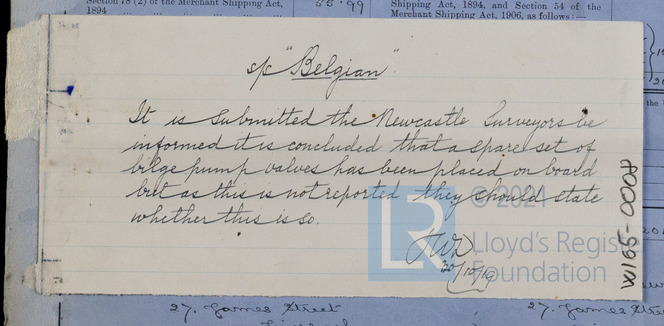 Section 78 (2) of the Merchant Shipping Act,
1894
55.99
Shipping Act, 1894, and Section 54 of the
Merchant Shipping Act, 1906, as follows:—
s/s "Belgian"
It is submitted the Newcastle Surveyors be
informed it is concluded that a spare set of
bilge pump valves has been placed on board
but as this is not reported they should state
whether this is so.
20/10/19
W165-0008
LR
© 2021
Lloyd's Register
Foundation
27. James Street
27. James Stree